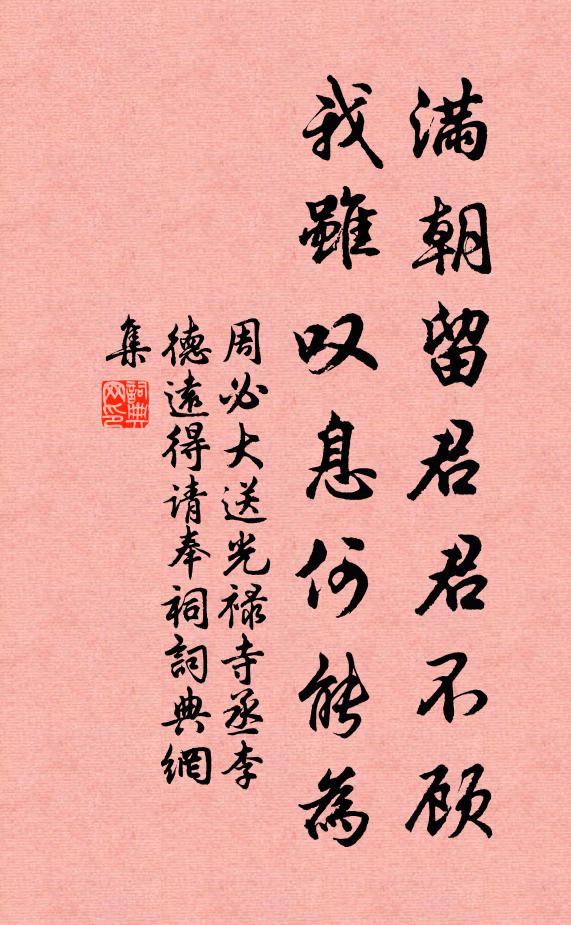 满朝留君君不顾
我雖叹息何能為
周必大送光禄寺丞李
德遠得请奉祠詞典網
集
詞典網印